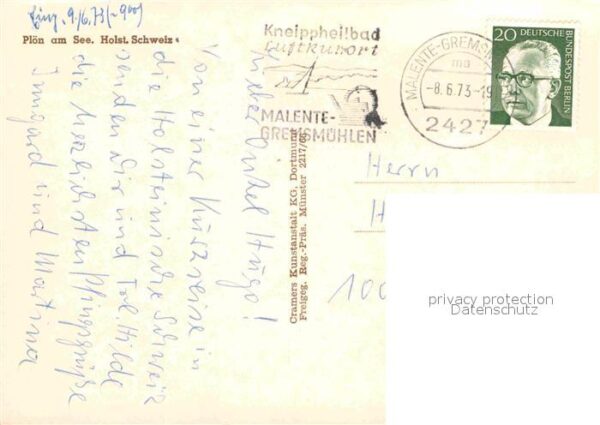 Eing. 9./6.73/-900)
Plön am See. Holst. Schweiz
Lieber Onkel Hugo!
Von einer Kurzreise in
die Holsteinische Schweiz
senden Dir und Tel. Hilde
die herzlichsten Pfingstgrüße
Irmgard und Martina
Cramers Kunstanstalt KG, Dortmund
Freigeg. Reg.-Präs. Münster 2217/65
Kneippheilbad
Luftkurort
MALENTE-
GREMSMÜHLEN
MALENTE-GREMSM
ma
-8.6.73-19
2427
20
DEUTSCHE
BUNDESPOST BERLIN
Herrn
H
100
privacy protection
Datenschutz